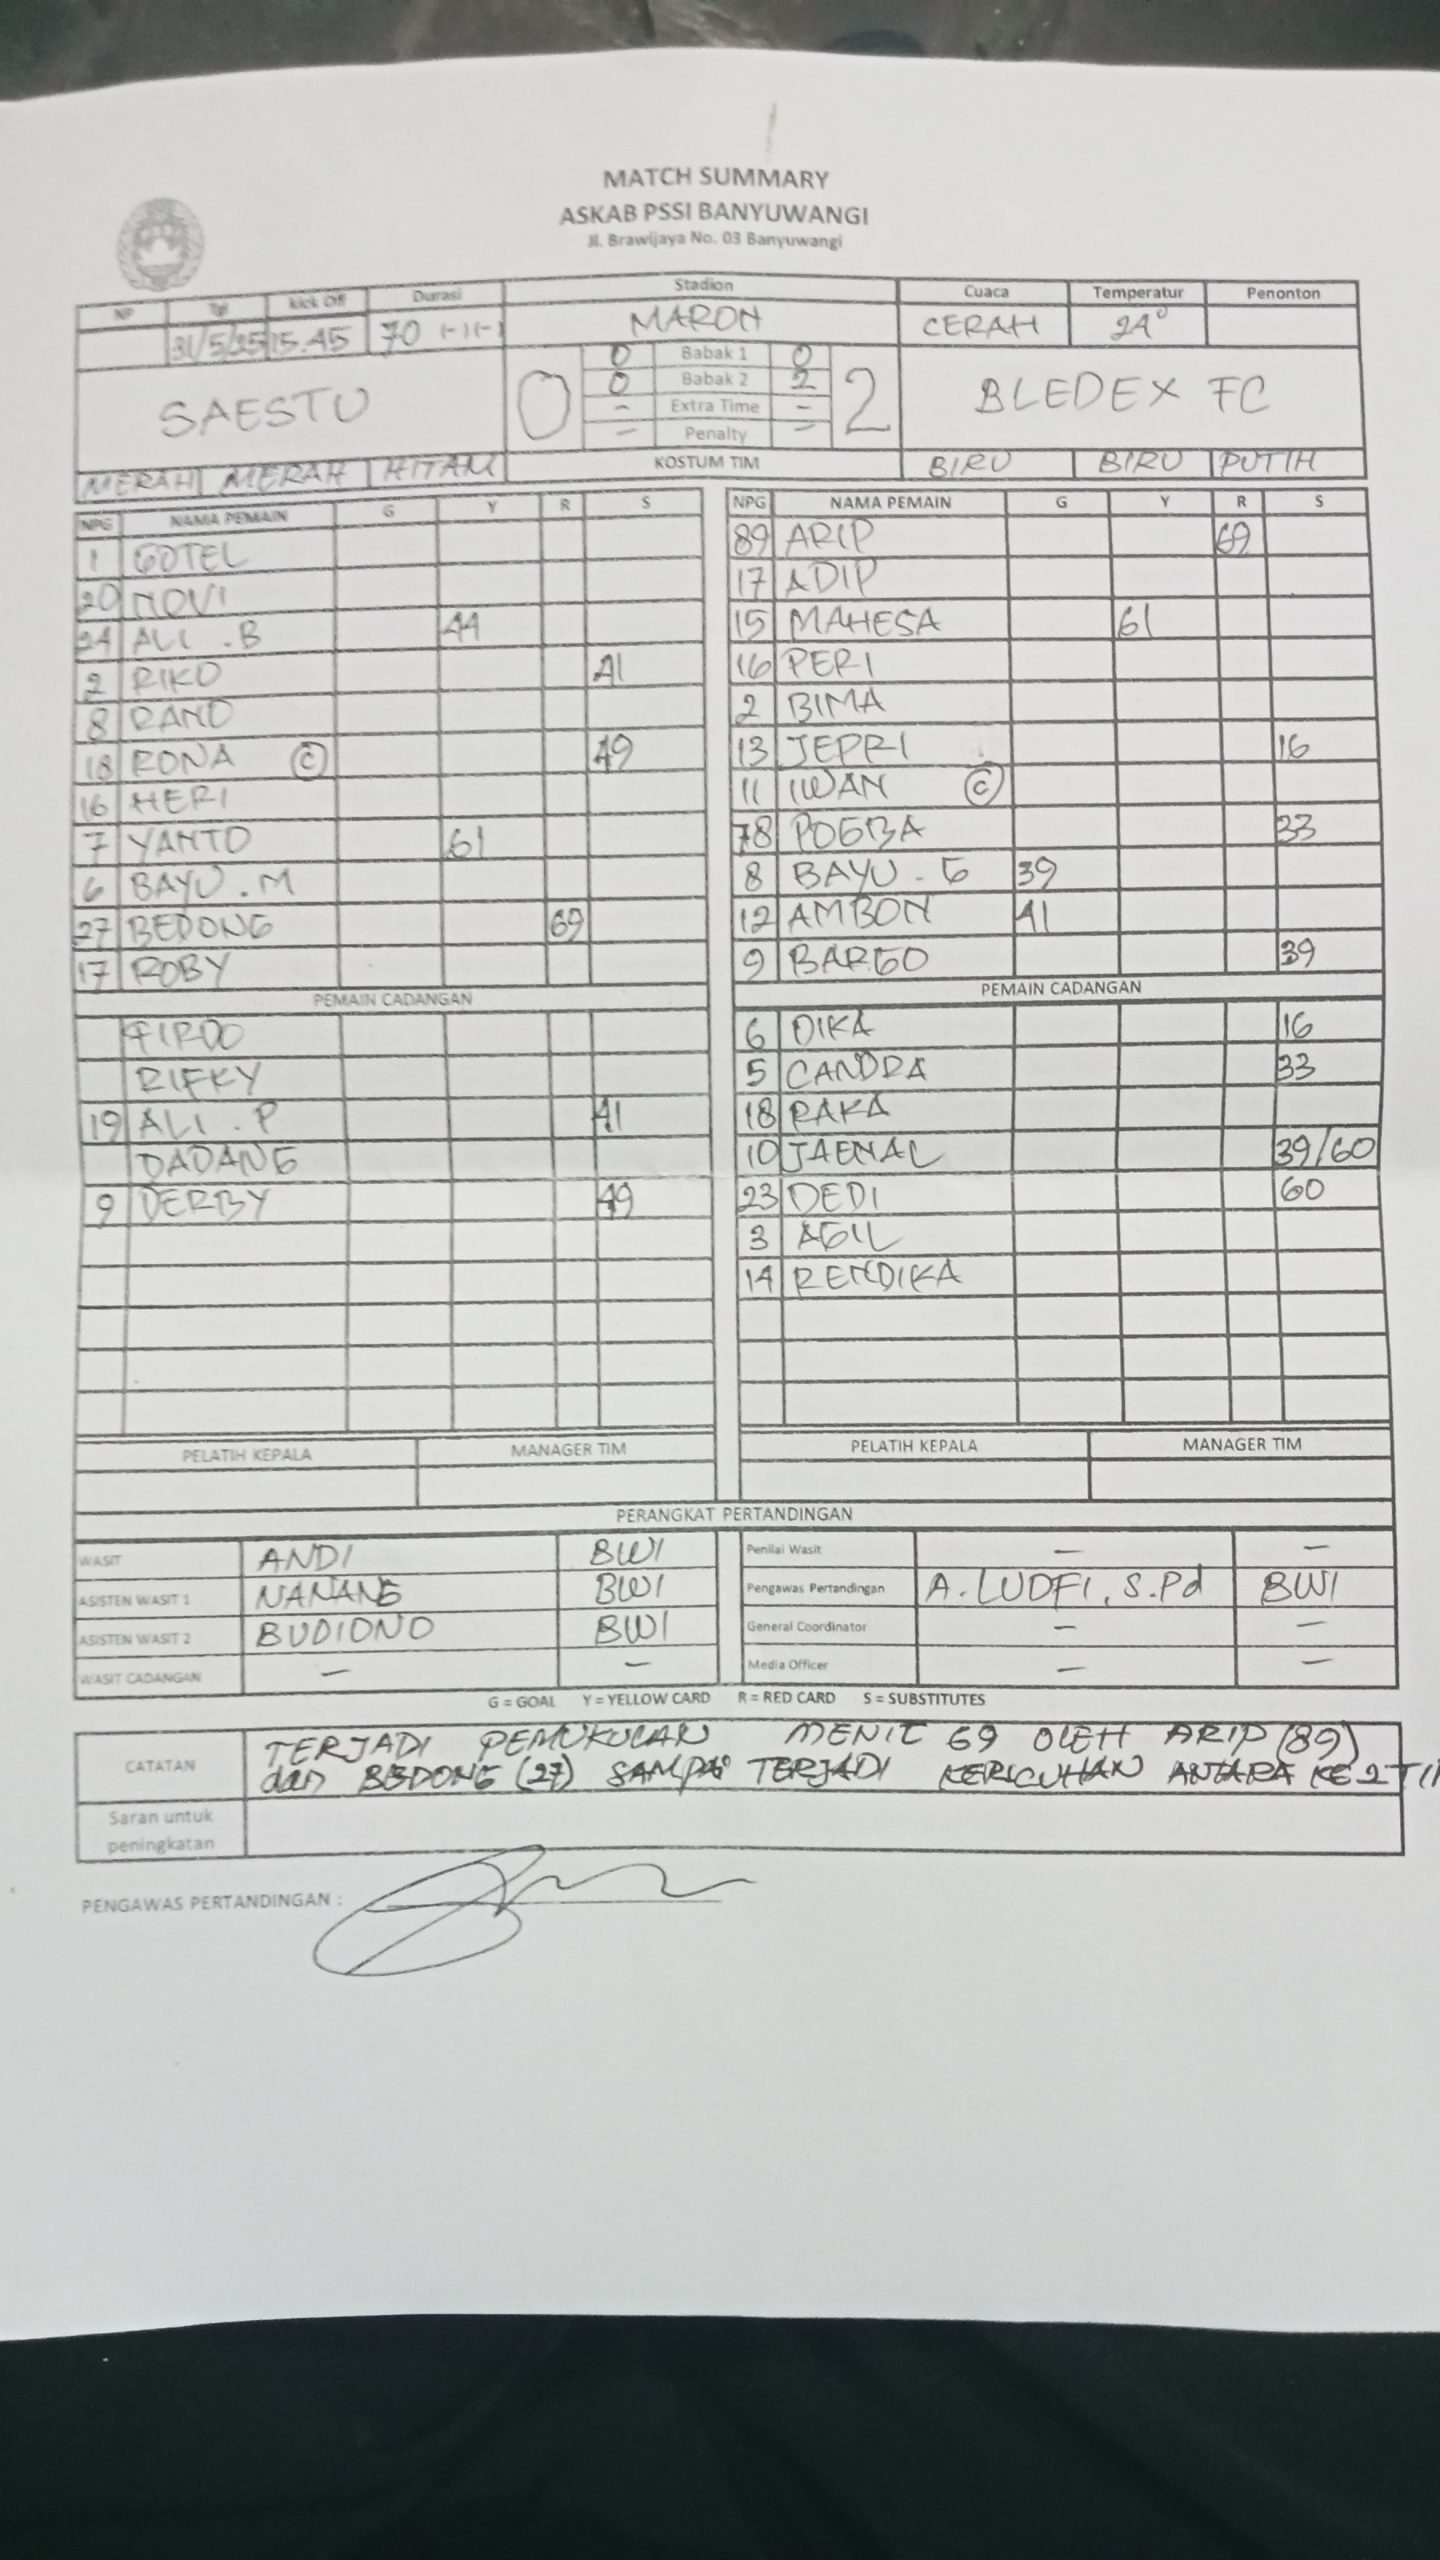 MATCH SUMMARY
ASKAB PSSI BANYUWANGI
Jl. Brawijaya No. 03 Banyuwangi
NP Tgl kick Off Durasi Stadion Cuaca Temperatur Penonton
31/5/25 15.45 70 (-)(-) MARON CERAH 24°
SAESTU 0 2 BLEDEX FC
0 Babak 1 0
0 Babak 2 2
- Extra Time -
- Penalty -
MERAH MERAH HITAM KOSTUM TIM BIRU BIRU PUTIH
NPG NAMA PEMAIN G Y R S NPG NAMA PEMAIN G Y R S
1 GOTEL 89 ARIP 69
20 NOVI 17 ADIP
24 ALI . B 44 15 MAHESA 61
2 RIKO 41 16 PERI
8 RANO 2 BIMA
18 RONA C 49 13 JEPRI 16
16 HERI 11 IWAN C
7 YANTO 61 78 POGBA 33
6 BAYU . M 8 BAYU . G 39
27 BEDONG 69 12 AMBON 41
17 ROBY 9 BARGO 39
PEMAIN CADANGAN PEMAIN CADANGAN
FIRDO 6 DIKA 16
RIFKY 5 CANDRA 33
19 ALI . P 41 18 RAKA
DADANG 10 JAENAL 39/60
9 DERBY 49 23 DEDI 60
3 AGIL
14 RENDIKA
PELATIH KEPALA MANAGER TIM PELATIH KEPALA MANAGER TIM
PERANGKAT PERTANDINGAN
WASIT ANDI BWI Penilai Wasit - -
ASISTEN WASIT 1 NANANG BWI Pengawas Pertandingan A. LUDFI, S.Pd BWI
ASISTEN WASIT 2 BUDIONO BWI General Coordinator - -
WASIT CADANGAN - - Media Officer - -
G = GOAL Y = YELLOW CARD R = RED CARD S = SUBSTITUTES
CATATAN TERJADI PEMUKULAN MENIT 69 OLEH ARIP (89)
dan BEDONG (27) SAMPAI TERJADI KERICUHAN ANTARA KE 2 TI
Saran untuk
peningkatan
PENGAWAS PERTANDINGAN :